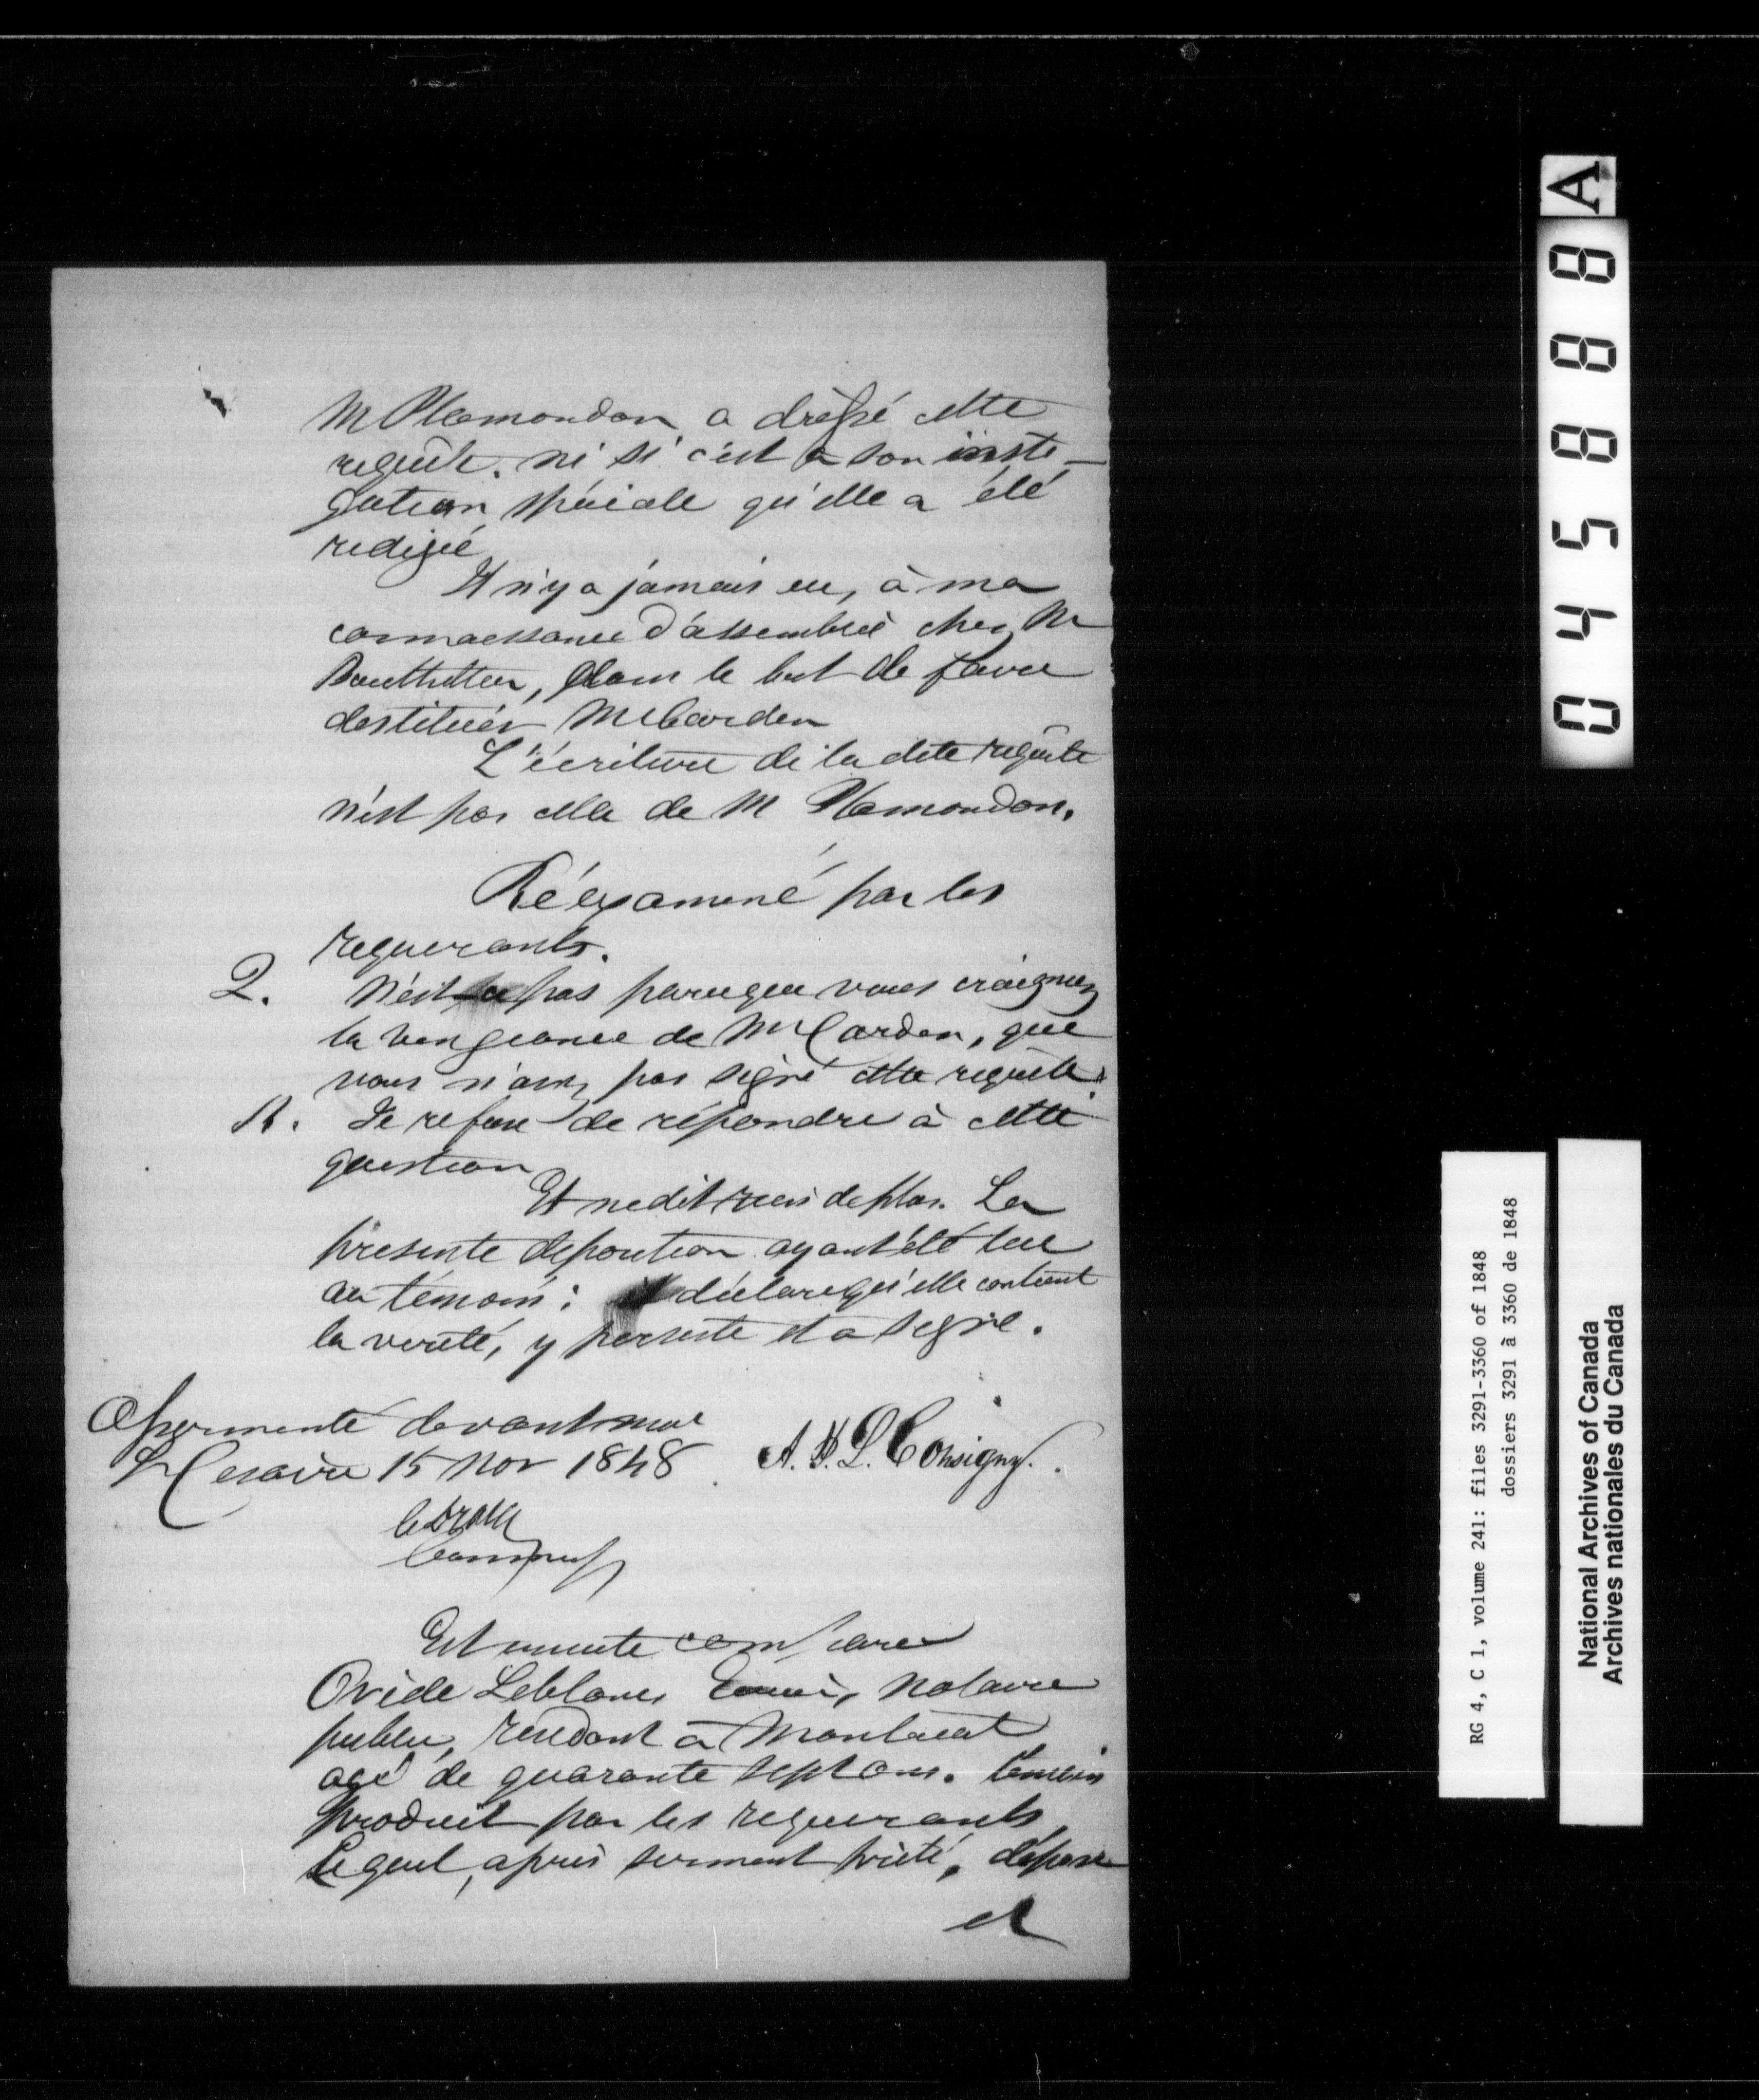 M Plamondon a dressé cette
requête, ni si c'est à son insti-
gation spéciale qu'elle a été
redigée
Il n'y a jamais eu, à ma
connaissance d'assemblée chez Mr
dans le but de faire
destituer Mr Carden
L'écriture de la dite requête
n'est pas celle de M Plamondon.
Réexaminé par les
requerants.
Q. N'est ce pas parceque vous craignez
la vengeance de Mr Carden, que
vous n'avez pas signé cette requête
R. Je refuse de répondre à cette
question
Et ne dit rien de plus. La
présente deposition ayant été lue
au témoin; il déclare qu'elle contient
la verité, y persiste et a signé.
Assermenté devant moi
St Cesaire 15 Nov 1848
A. B. L. Consigny.
Est ensuite comparu
Ovide Leblanc Ecuier, Notaire
public, residant à Montreal
agé de quarante sept ans. temoin
produit par les requerants
Lequel, après serment prêté, dépose
et
045888 A
RG 4, C 1, volume 241: files 3291-3360 of 1848
dossiers 3291 à 3360 de 1848
National Archives of Canada
Archives nationales du Canada